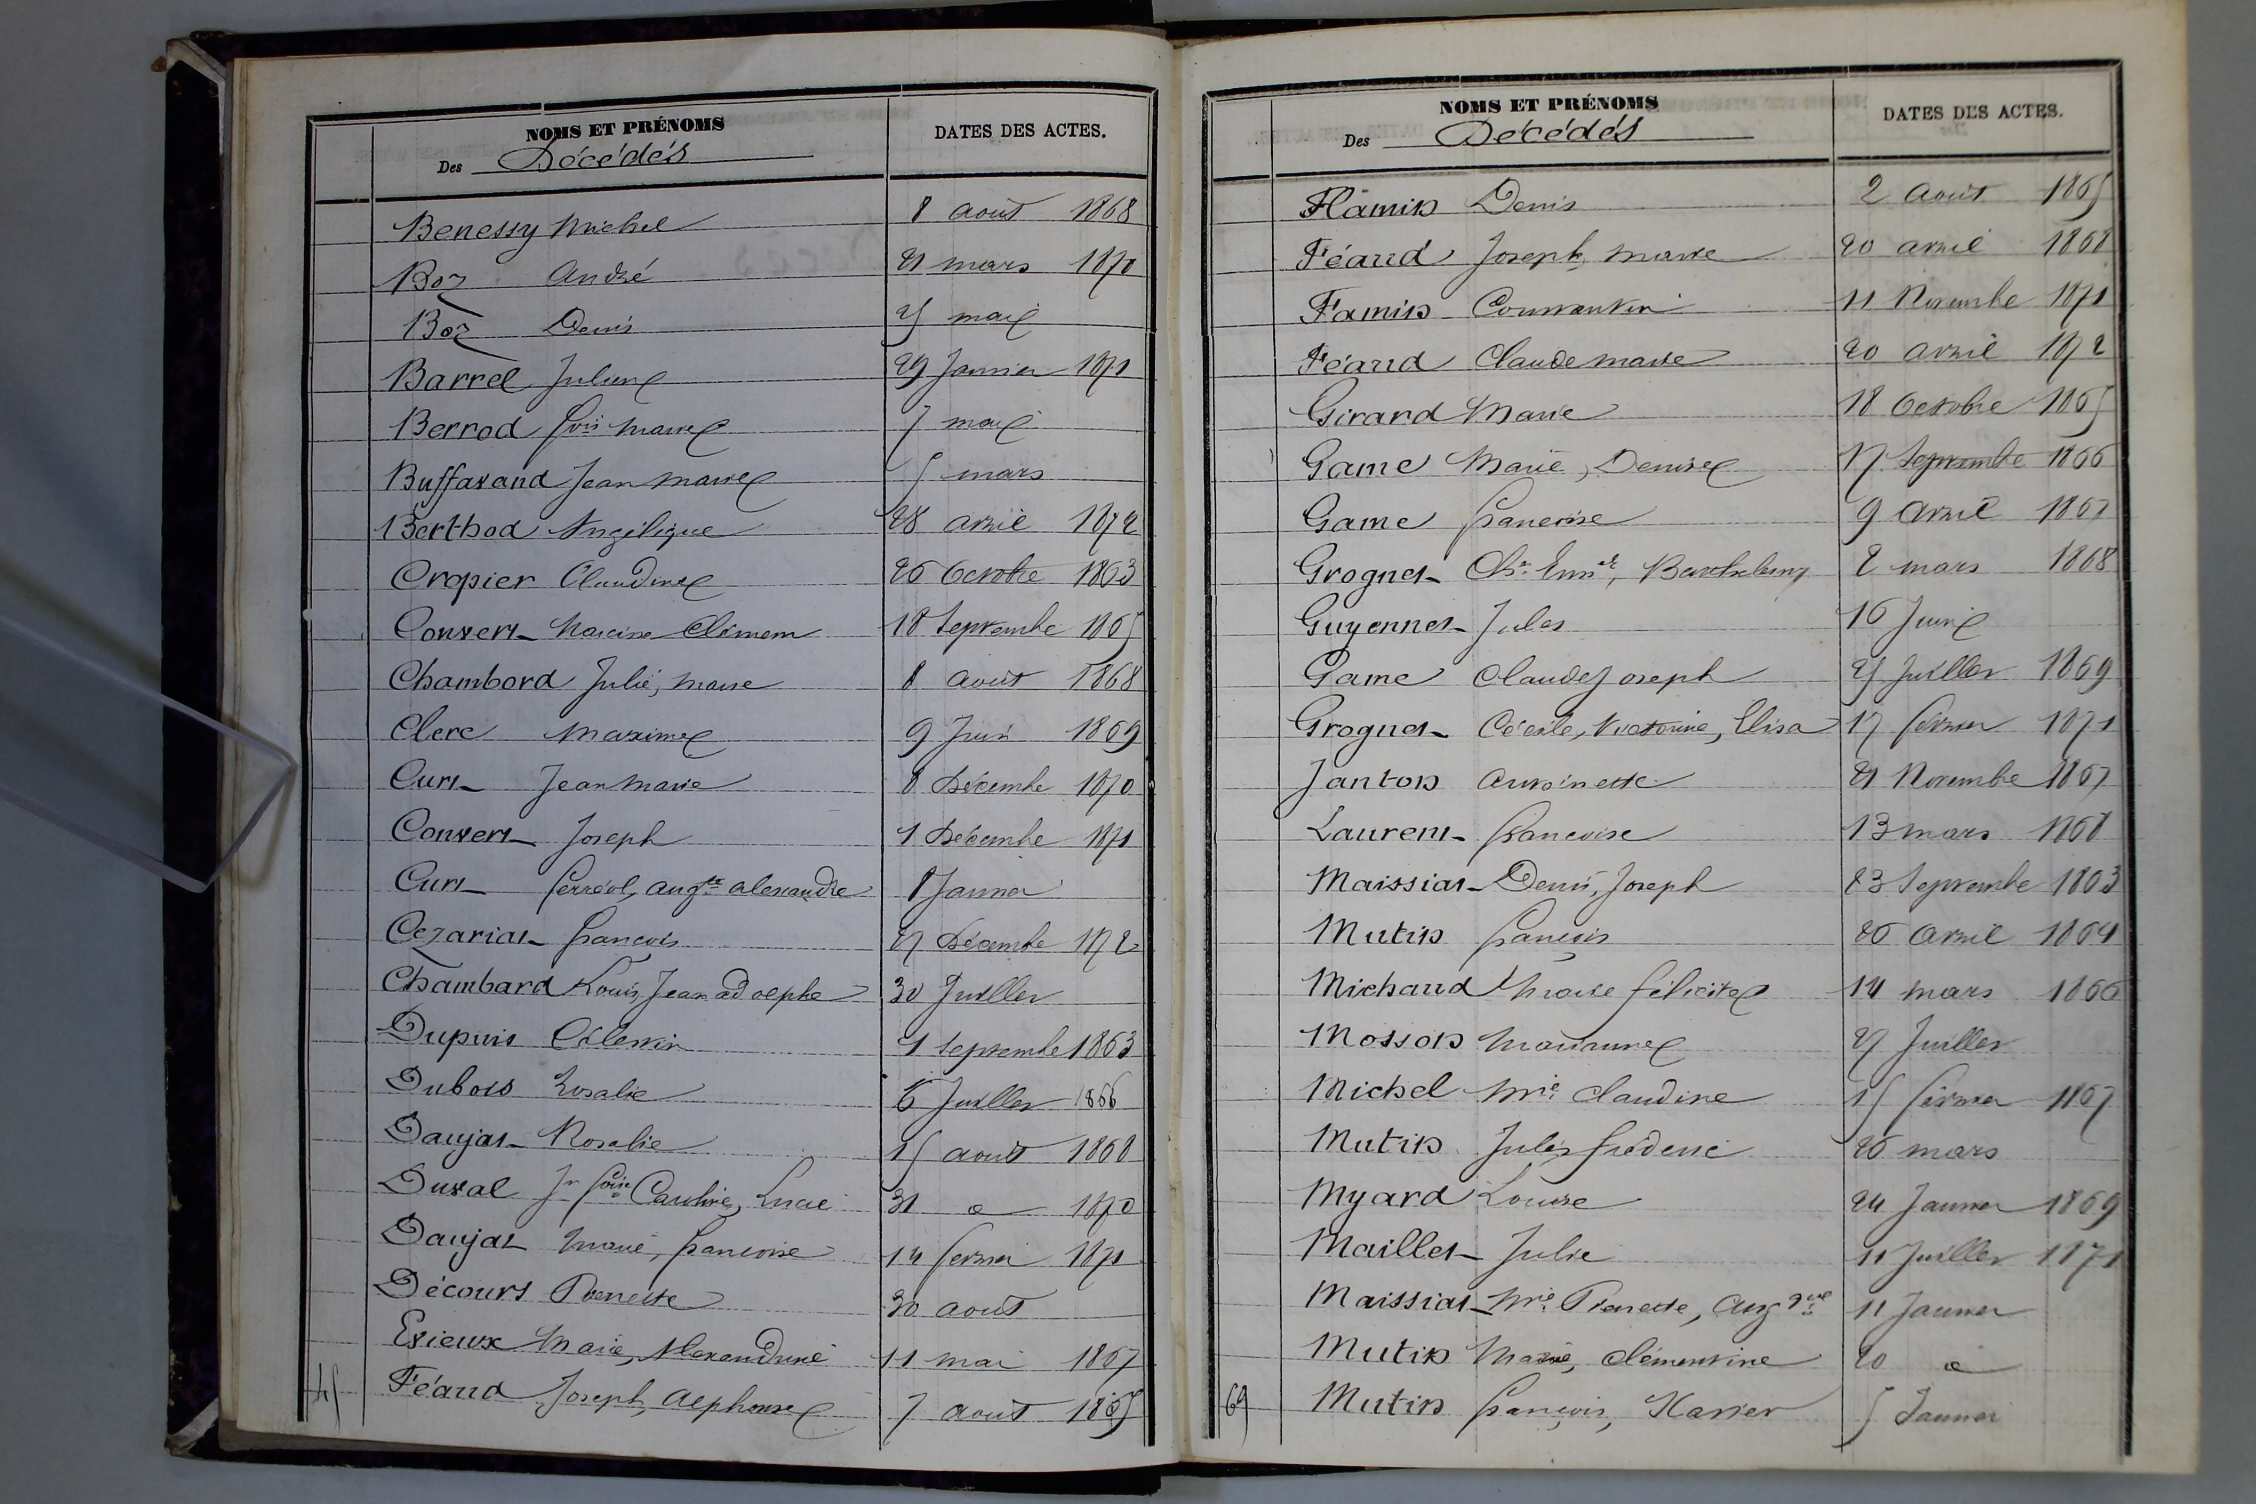 NOMS ET PRÉNOMS
Des Décédés
DATES DES ACTES.
Benessy Michel 8 aout 1868
Boz André 21 mars 1870
Boz Denis 25 mai
Barrel Julien 29 Janvier 1871
Berrod fois Marie 7 mai
Buffavand Jean Marie 5 mars
Berthod Angélique 28 avril 1872
Claudine 26 Octobre 1863
Convert Narcisse Clément 18 Septembre 1865
Chambord Julie, Marie 8 aout 1868
Clerc Maxime 9 Juin 1869
Curt Jean Marie 8 Décembre 1870
Convert Joseph 1 Décembre 1871
Curt ferréol, augte alexandre 8 Janvier
Cezariat françois 27 Décembre 1872
Chambard Louis, Jean adolphe 30 Juillet
Dupuis Célestin 1 Septembre 1863
Dubois Rosalie 6 Juillet 1866
Daujat Rosalie 15 aout 1868
Duval Jn foise Caroline, Lucie 31 d 1870
Daujat Marie, francoise 14 fevrier 1871
Décourt Pierrette 30 aout
Exieux Marie, Alexandrine 11 mai 1867
45 Féaud Joseph, Alphonse 7 aout 1865
NOMS ET PRÉNOMS
Des Décédés
DATES DES ACTES.
Flamin Denis 2 aout 1865
Féaud Joseph Marie 20 avril 1868
Famin Constantin 11 Novembre 1871
Féaud Claude Marie 20 avril 1872
Girard Marie 18 Octobre 1865
Game Marie, Denise 17 Septembre 1866
Game francoise 9 avril 1867
Grognet Barthelemy 2 mars 1868
Guyennet Jules 16 Juin
Game Claude Joseph 25 Juillet 1869
Grognet Cécile, Victorine, Elisa 17 février 1871
Janton Antoinette 21 Novembre 1867
Laurent francoise 13 mars 1868
Maissiat Denis, Joseph 23 Septembre 1863
Mutin françois 26 avril 1864
Michaud Marie félicité 14 mars 1866
Mosson Marianne 27 Juillet
Michel Mrie Claudine 15 février 1867
Mutin Jules frédéric 26 mars
Myard Louise 24 Janvier 1869
Maillet Julie 11 Juillet 1871
Maissiat Mrie Pierrette, Augine 11 Janvier
Mutin Marie, Clémentine 20 d
69 Mutin françois, Xavier 5 Janvier